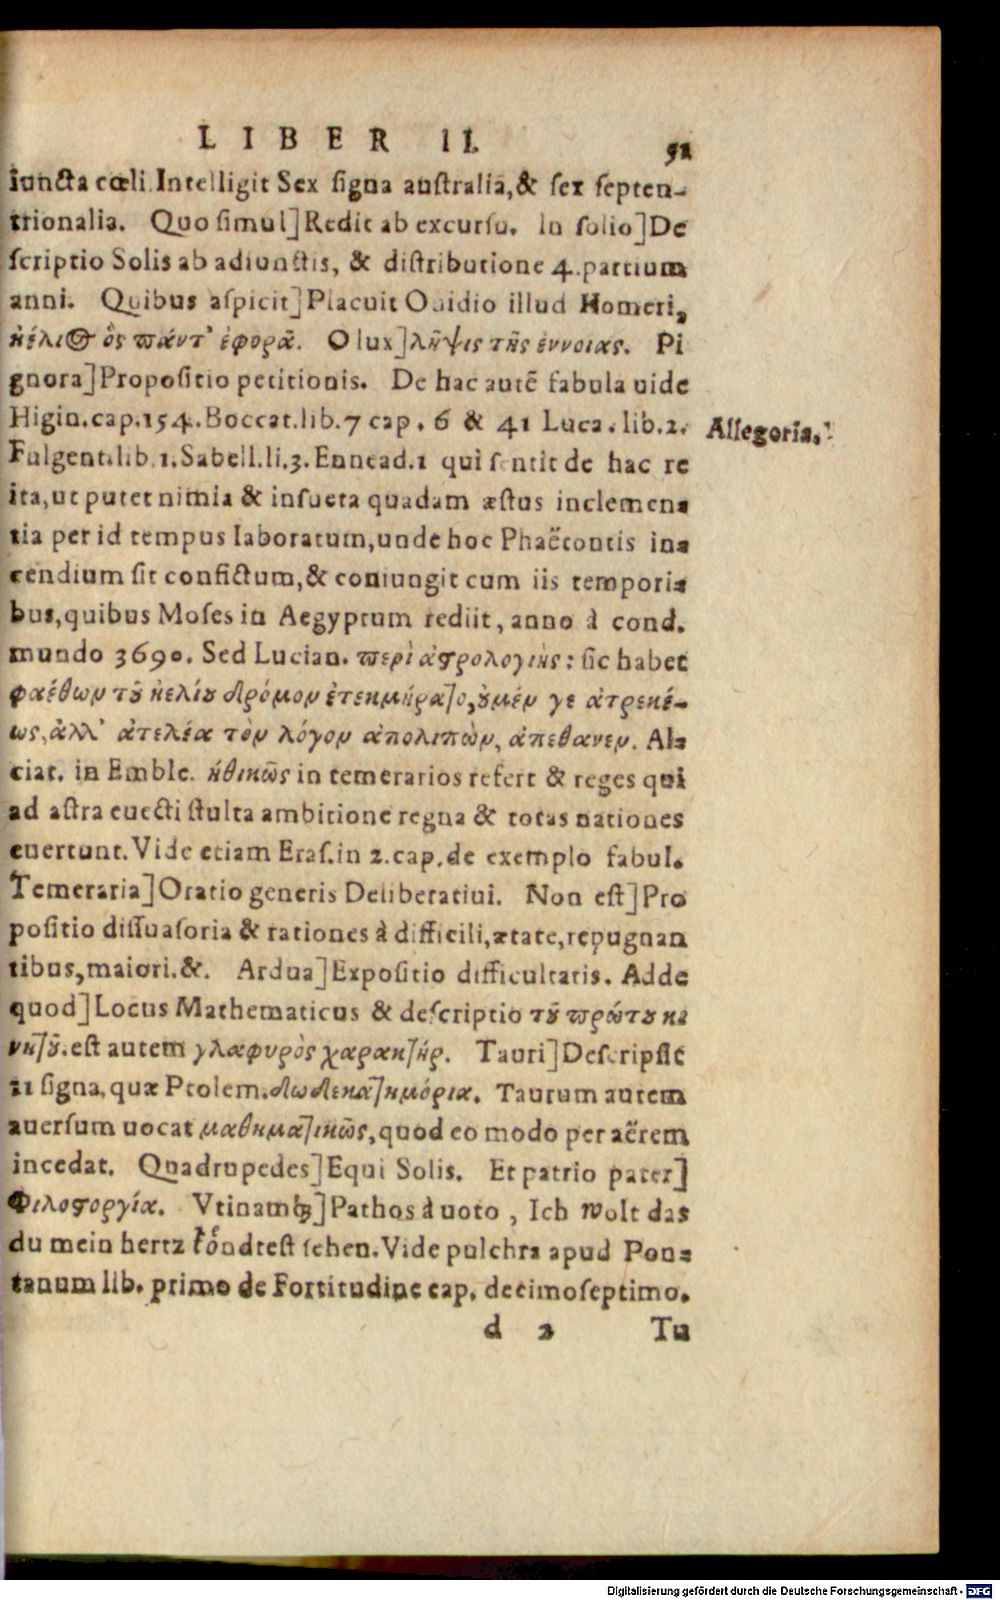 LIBER II.
52
iuncta cœli. Intelligit Sex signa australia, & sex septen-
trionalia. Quo simul] Redit ab excursu. In solio] De
scriptio Solis ab adiunctis, & distributione 4. partium
anni. Quibus aspicit] Placuit Ouidio illud Homeri,
ἠέλιος ὃς πάντ' ἐφορᾷ. O lux] λῆψις τῆς ἐννοιας. Pi
gnora] Propositio petitionis. De hac autē fabula uide
Higin. cap. 154. Boccat. lib. 7 cap. 6 & 41 Luca. lib. 2.
Allegoria.
Fulgent. lib. 1. Sabell. li. 3. Ennead. 1 qui sentit de hac re
ita, ut putet nimia & insueta quadam æstus inclemen-
tia per id tempus laboratum, unde hoc Phaëtontis in-
cendium sit confictum, & coniungit cum iis tempori-
bus, quibus Moses in Aegyptum rediit, anno à cond.
mundo 3690. Sed Lucian. περὶ ἀστρολογίης: sic habet
φαέθων τοῦ ἠελίου δρόμον ἐτεκμήρατο, οὐ μέν γε ἀτρεκέ-
ως, ἀλλ' ἀτελέα τὸν λόγον ἀπολιπὼν, ἀπεθανεν. Al-
ciat. in Emble. ἠθικῶς in temerarios refert & reges qui
ad astra euecti stulta ambitione regna & totas nationes
euertunt. Vide etiam Eras. in 2. cap. de exemplo fabul.
Temeraria] Oratio generis Deliberatiui. Non est] Pro
positio dissuasoria & rationes à difficili, ætate, repugnan
tibus, maiori. &. Ardua] Expositio difficultatis. Adde
quod] Locus Mathematicus & descriptio τοῦ πρώτου κι
νητοῦ. est autem γλαφυρὸς χαρακτήρ. Tauri] Descripsit
11 signa, quæ Ptolem. δωδεκατημόρια. Taurum autem
auersum uocat μαθηματικῶς, quod eo modo per aërem
incedat. Quadrupedes] Equi Solis. Et patrio pater]
Φιλοστοργία. Vtinamq́;] Pathos à uoto, Ich wolt das
du mein hertz koͤndtest sehen. Vide pulchra apud Pon-
tanum lib. primo de Fortitudine cap. decimoseptimo.
d 2 Tu
Digitalisierung gefördert durch die Deutsche Forschungsgemeinschaft - DFG